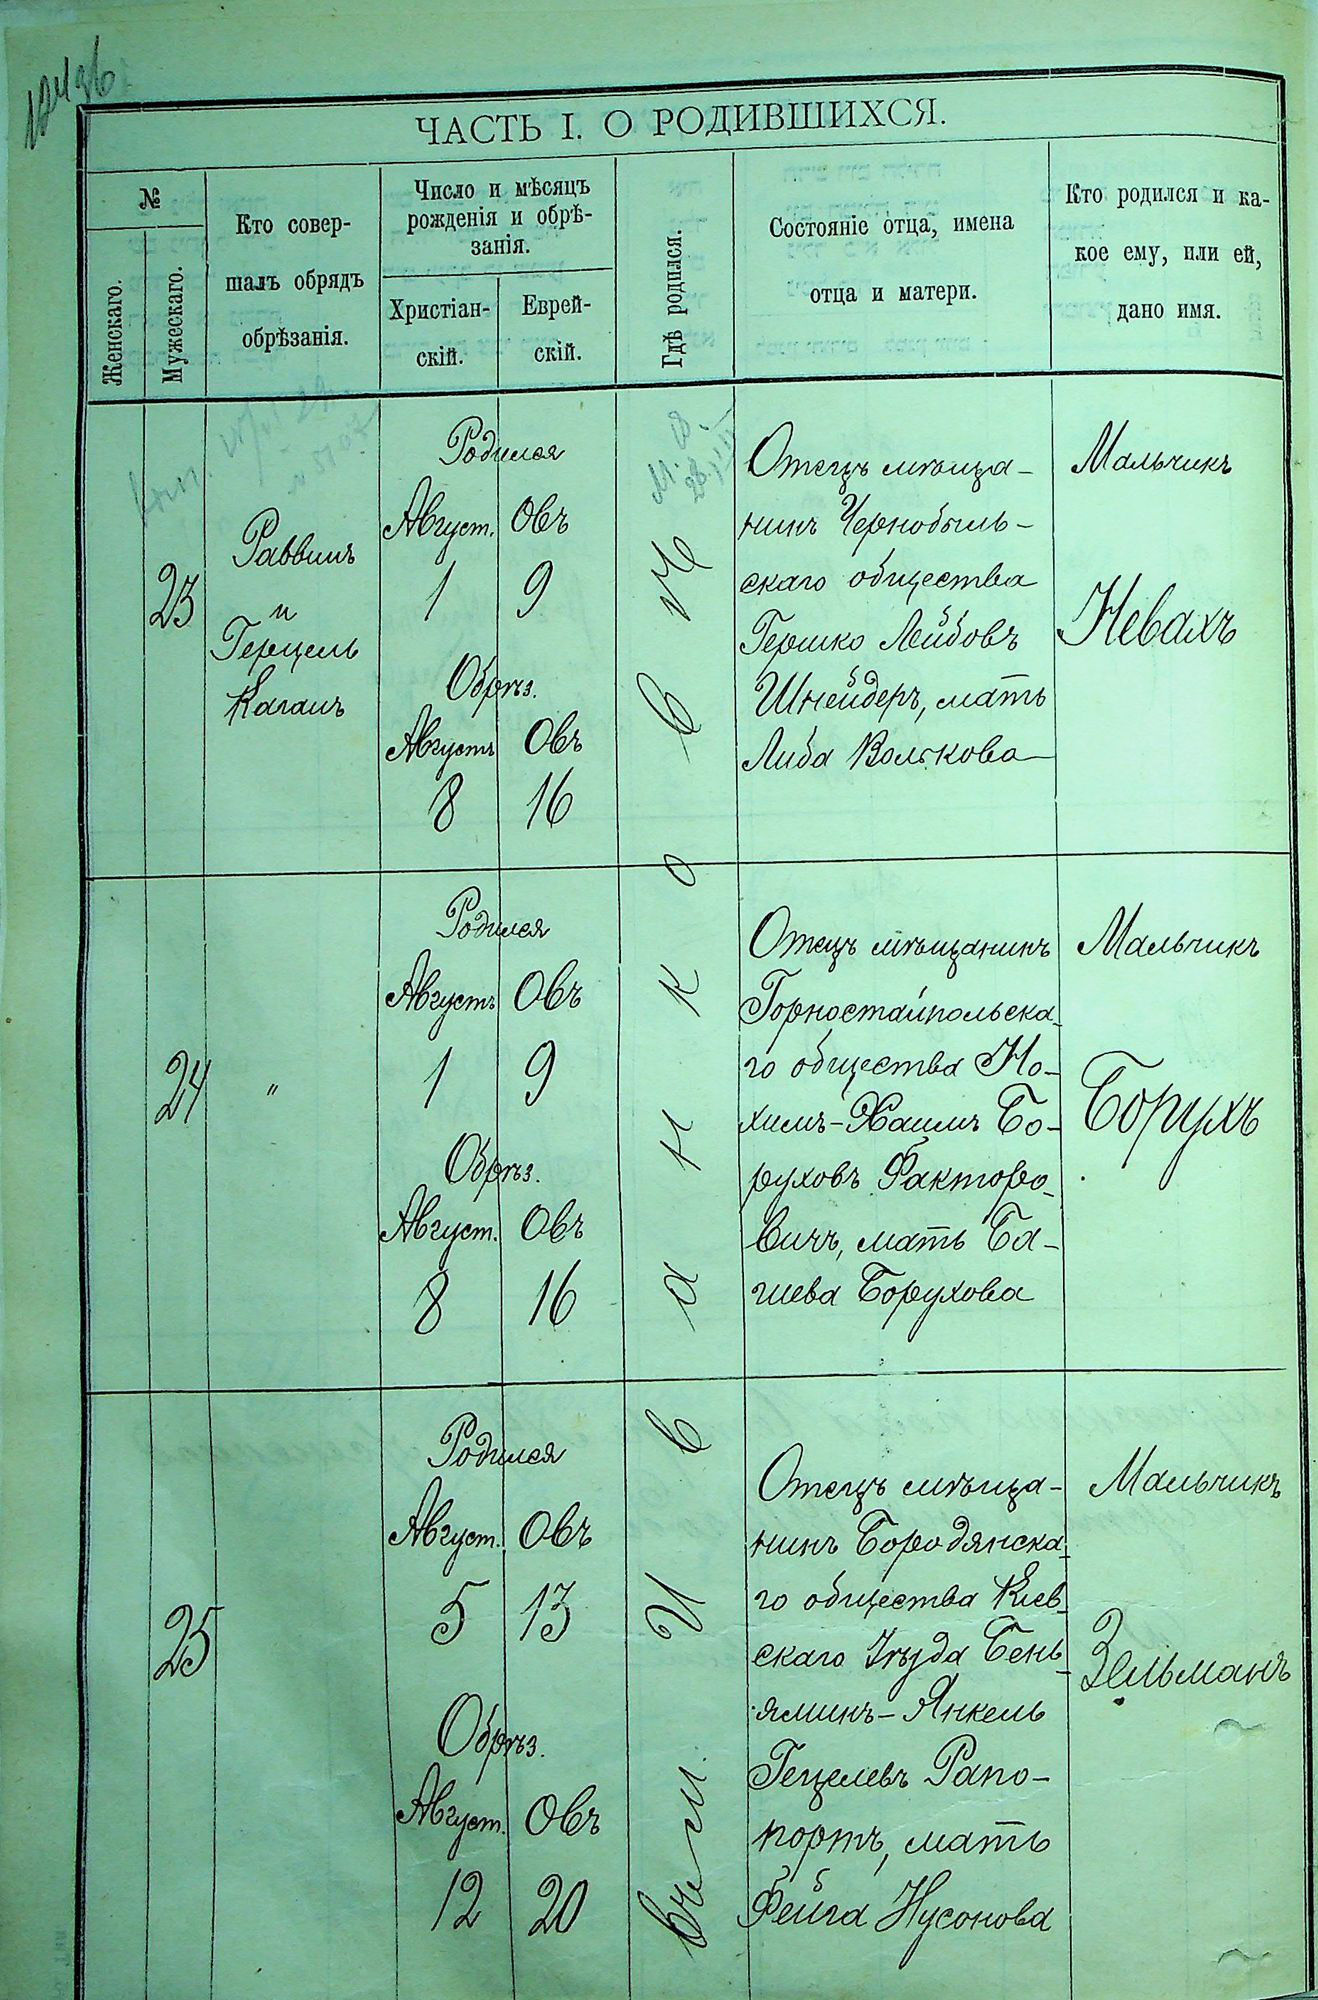 ЧАСТЬ I. О РОДИВШИХСЯ.
№
Женскаго.
Мужескаго.
Кто совер-
шалъ обрядъ
обрѣзанія.
Число и мѣсяцъ
рожденія и обрѣ-
занія.
Христіан-
скій.
Еврей-
скій.
Гдѣ родился.
Состояніе отца, имена
отца и матери.
Кто родился и ка-
кое ему, или ей,
дано имя.
23
Раввинъ
и
Герцель
Каганъ
Родился
Август. Овъ
1 9
Обрѣз.
Августъ Овъ
8 16
Отецъ мѣща-
нинъ Чернобыль-
скаго общества
Гершко Лейбовъ
Шнейдеръ, мать
Либа Волькова
Мальчикъ
Невахъ
24
"
Родился
Августъ Овъ
1 9
Обрѣз.
Август. Овъ
8 16
Отецъ мѣщанинъ
Горностайпольска-
го общества Но-
химъ-Хаимъ Бо-
руховъ Факторо-
вичъ, мать Ба-
шева Борухова
Мальчикъ
Борухъ
25
Родился
Август. Овъ
5 13
Обрѣз.
Август. Овъ
12 20
Отецъ мѣща-
нинъ Бородянска-
го общества Кіев-
скаго уѣзда Бень-
яминъ-Янкель
Гецелевъ Рапо-
портъ, мать
Фейга Нусонова
Мальчикъ
Зельманъ
въ м. Иванковѣ